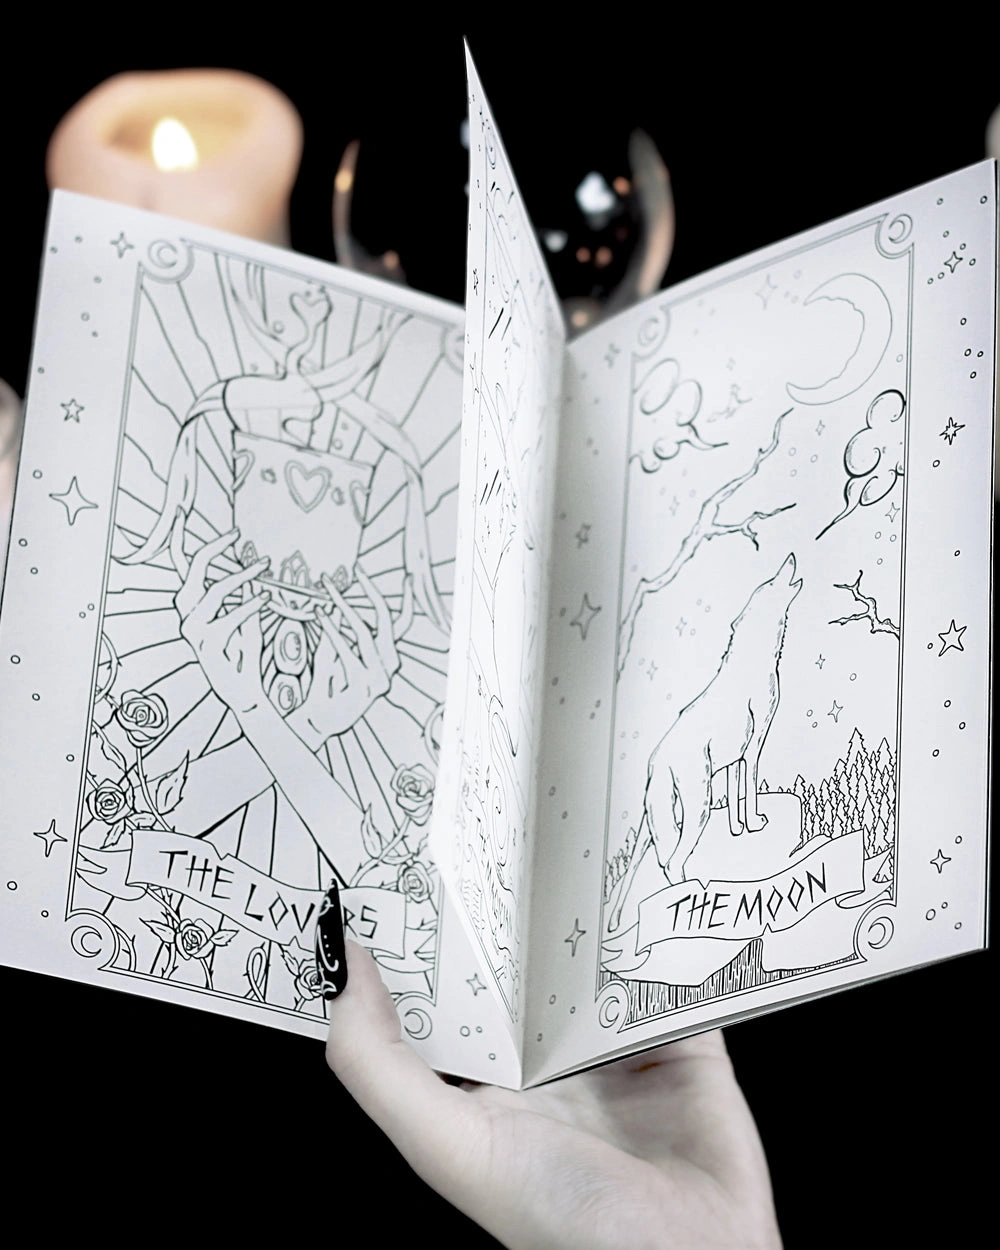 THE LOVERS
THE MOON